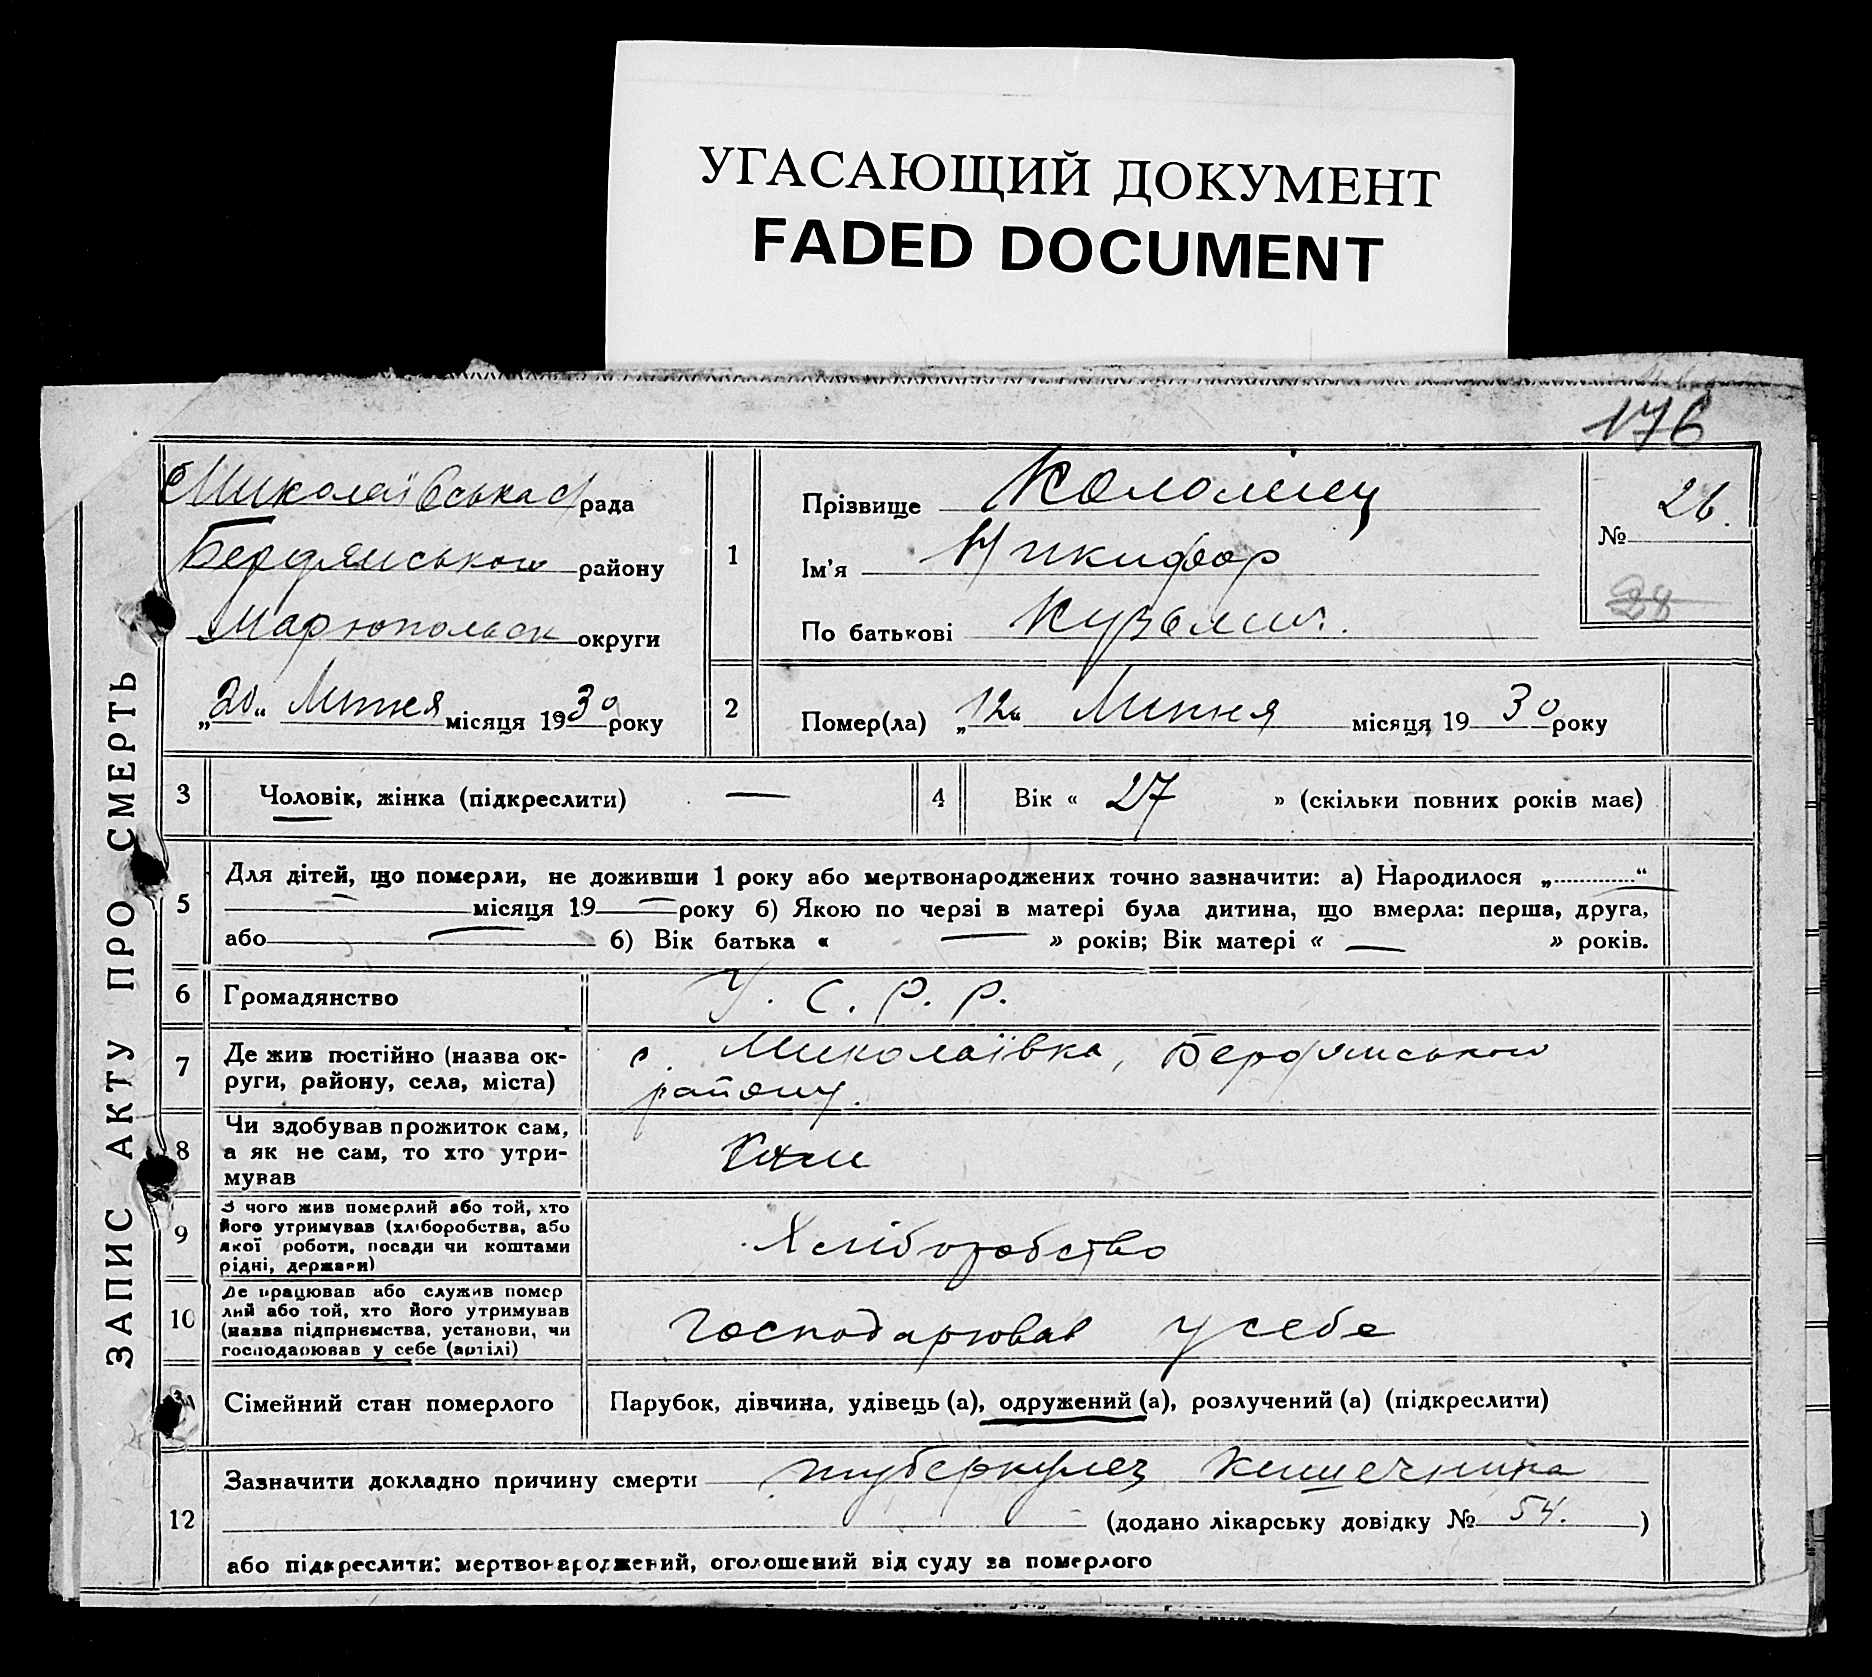 УГАСАЮЩИЙ ДОКУМЕНТ
FADED DOCUMENT
176
ЗАПИС АКТУ ПРО СМЕРТЬ
Миколаївська с/рада
Бердянського району
Марюпольск округи
„20“ Липня місяця 1930 року
1
Прізвище Коломієц
Ім'я Никифор
По батькові Кузьмич.
№ 26.
28
2
Помер(ла) „12“ Липня місяця 1930 року
3 Чоловік, жінка (підкреслити) —
4 Вік « 27 » (скільки повних років має)
5
Для дітей, що померли, не доживши 1 року або мертвонароджених точно зазначити: а) Народилося „ — “
— місяця 19 — року б) Якою по черзі в матері була дитина, що вмерла: перша, друга,
або — б) Вік батька « — » років; Вік матері « — » років.
6 Громадянство У. С. Р. Р.
7
Де жив постійно (назва ок-
руги, району, села, міста)
с. Миколаївка, Бердянського
району.
8
Чи здобував прожиток сам,
а як не сам, то хто утри-
мував
9
З чого жив померлий або той, хто
його утримував (хліборобства, або
якої роботи, посади чи коштами
рідні, держави)
Хліборобство
10
Де працював або служив помер
лий або той, хто його утримував
(назва підприємства, установи, чи
господарював у себе (артілі)
Господарював у себе
Сімейний стан померлого
Парубок, дівчина, удівець (а), одружений (а), розлучений (а) (підкреслити)
12
Зазначити докладно причину смерти туберкулез кишечника
(додано лікарську довідку № 54. )
або підкреслити: мертвонароджений, оголошений від суду за померлого